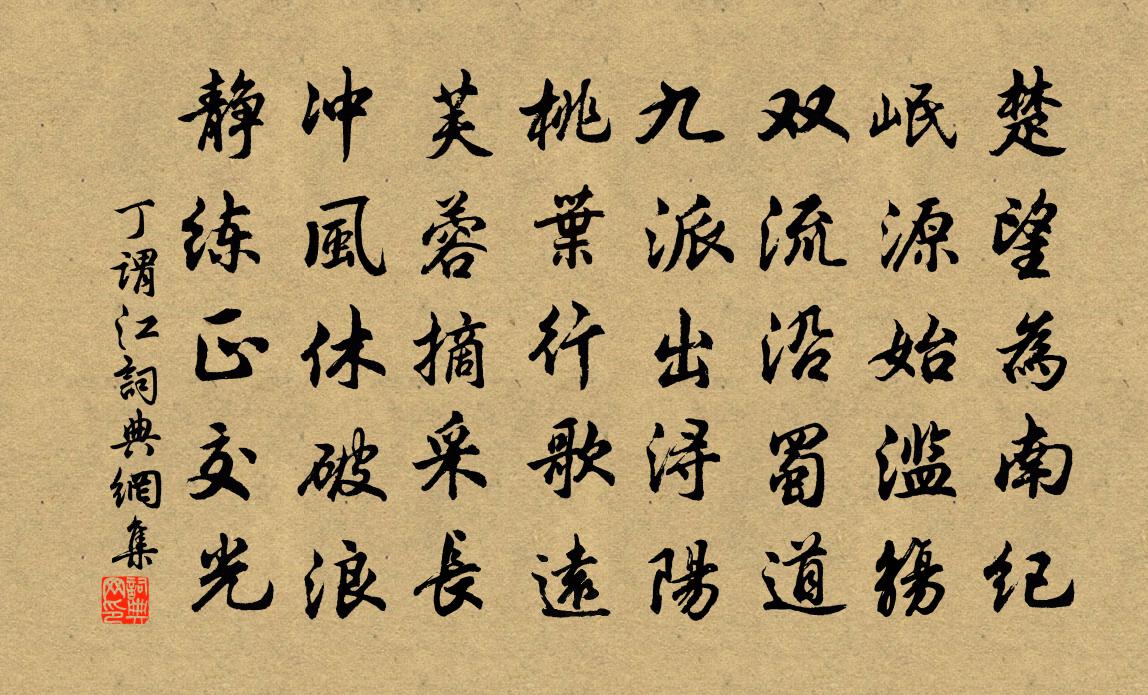 楚望為南纪
岷源始滥觞
双流沿蜀道
九派出浔陽
桃葉行歌遠
芙蓉摘采長
冲風休破浪
静练正交光
丁谓江詞典網集
詞典网印